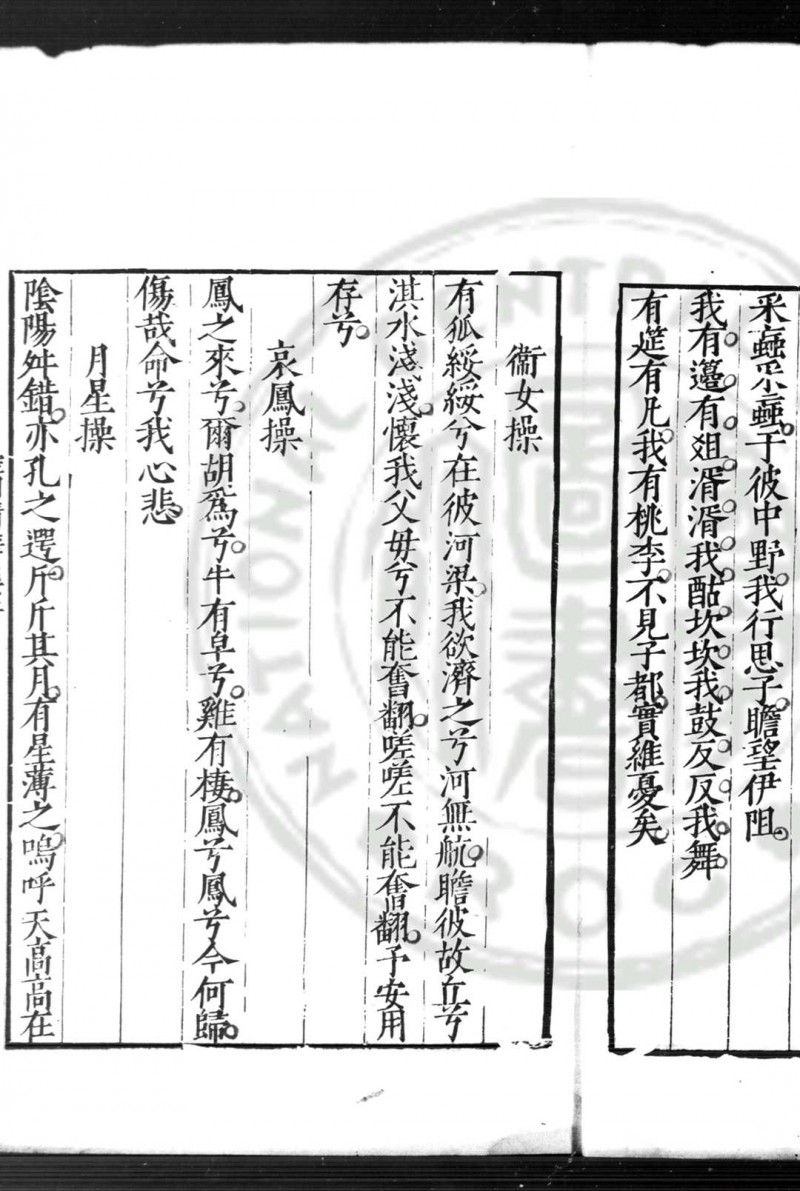 采蝱采蝱于彼中野我行思子瞻望伊阻
我有籩有俎湑湑我酤坎坎我鼓反反我舞
有筵有几我有桃李不見子都實維憂矣
衞女操
有狐綏綏兮在彼河梁我欲濟之兮河無航瞻彼故丘兮
淇水淺淺懷我父母兮不能奮翻嗟嗟不能奮翻予安用
存兮
哀鳳操
鳳之來兮爾胡為兮牛有皁兮雞有棲鳳兮鳳兮今何歸
傷哉命兮我心悲
月星操
陰陽舛錯亦孔之遌斤斤其月有星薄之嗚呼天高高在
NATIONAL CENTR
ROC
圖書